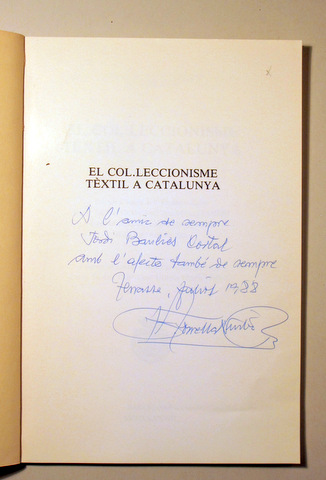 EL COL.LECCIONISME
TÈXTIL A CATALUNYA
A l'amic de sempre
Jordi Barbies Costal
amb l'afecte també de sempre
Terrassa, juliol 1988